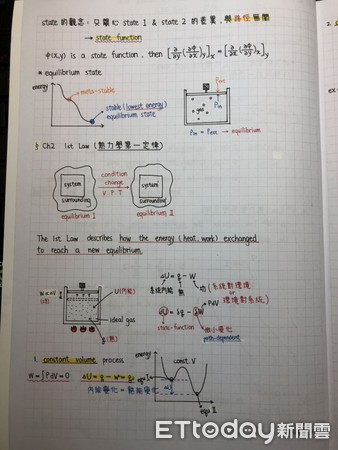 state 的觀念：只關心 state 1 & state 2 的差異，與路徑無關
→ state function
ϕ(x,y) is a state function, then [∂/∂y(∂ϕ/∂x)y]x = [∂/∂x(∂ϕ/∂y)x]y
equilibrium state
energy
meta-stable
stable (lowest energy)
equilibrium state
Pext
gas
Pin
Pin = Pext → equilibrium
§ Ch2 1st Law (熱力學第一定律)
system
surrounding
equilibrium I
condition
change
V. P. T
system'
surrounding
equilibrium II
The 1st Law describes how the energy (heat, work) exchanged
to reach a new equilibrium.
U(內能)
ideal gas
q(熱)
ΔU = q - W
系統內能 熱 功 (系統對環境 or 環境對系統)
PdV
dU = δq - δW
state-function
微小變化
path-dependent
1. constant volume process
W = ∫PdV = 0
ΔU = q - W = q
內能變化 = 熱能變化
energy
const. V
equ I
ΔU
equ II
ETtoday新聞雲